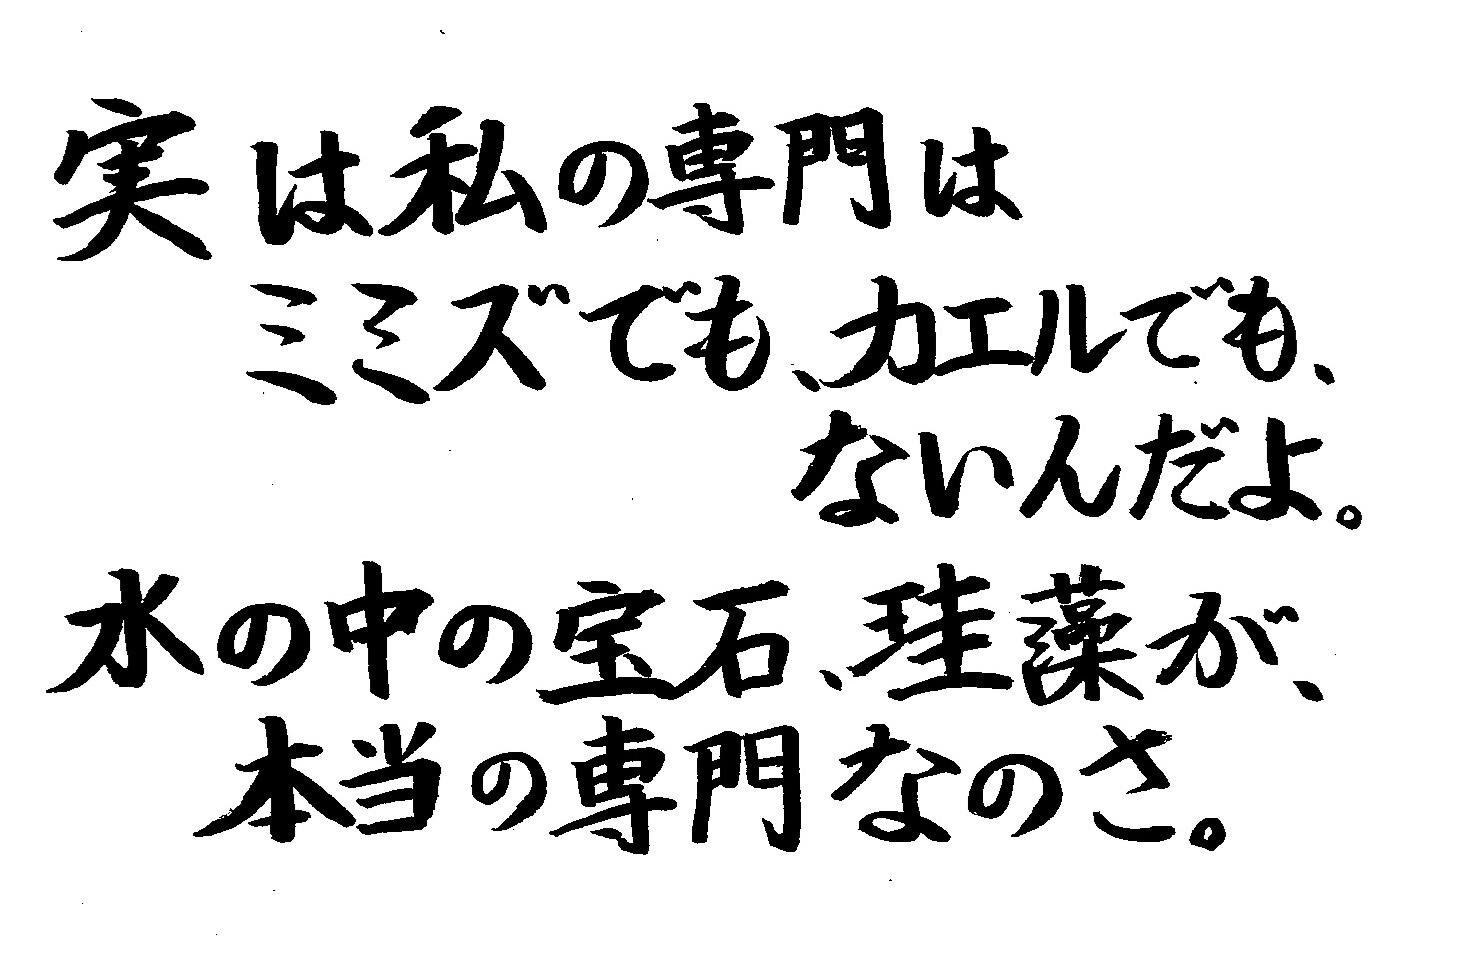 実は私の専門は
ミミズでも、カエルでも、
ないんだよ。
水の中の宝石、珪藻が、
本当の専門なのさ。